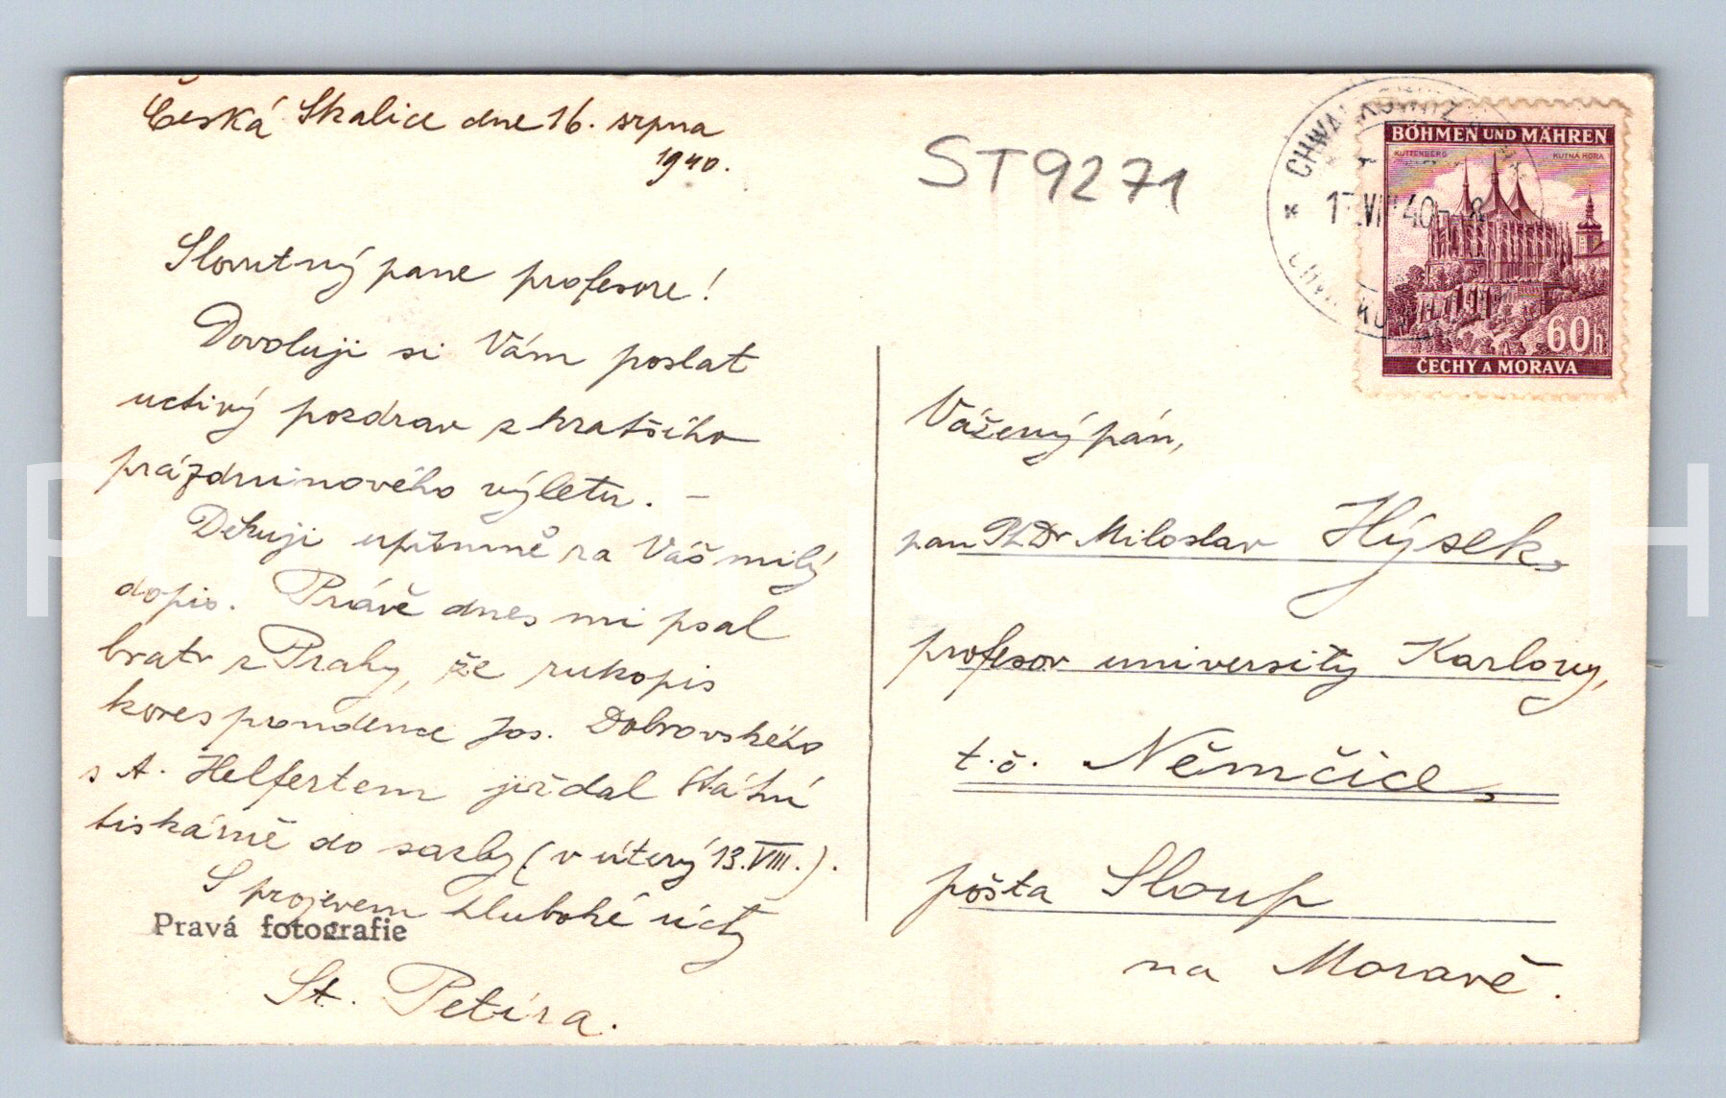 Česká Skalice dne 16. srpna
1940.
Slovutný pane profesore!
Dovoluji si Vám poslat
uctivý pozdrav z kratšího
prázdninového výletu. –
Děkuji upřímně za Váš milý
dopis. Právě dnes mi psal
bratr z Prahy, že rukopis
korespondence Jos. Dobrovského
s A. Helfertem již dal Státní
tiskárně do sazby (v úterý 13.VIII.).
S projevem hluboké úcty
Pravá fotografie
St. Petíra.
ST9271
BÖHMEN UND MÄHREN
KUTTENBERG KUTNÁ HORA
60h
ČECHY A MORAVA
CHWALKOWITZ
17.VIII 40 - 8
Vážený pán,
pan PhDr Miloslav Hýsek,
profesor university Karlovy,
t.č. Němčice,
pošta Sloup
na Moravě.